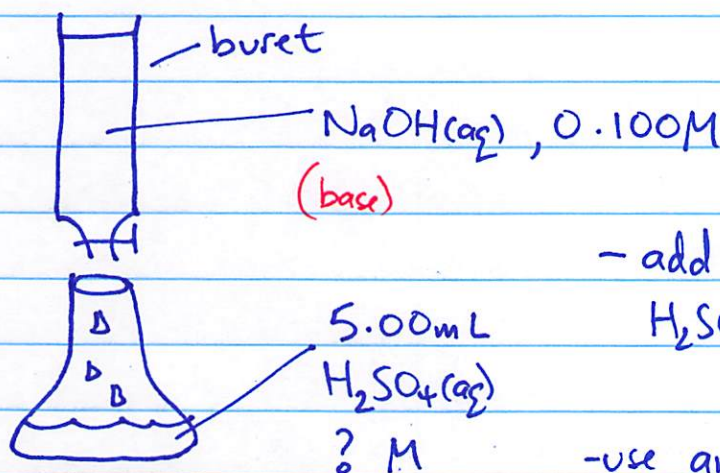 buret
NaOH(aq), 0.100M
(base)
- add
5.00mL H₂SO
H₂SO₄(aq)
? M -use an